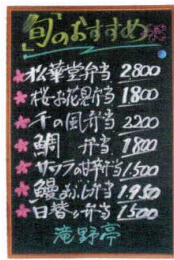 旬のおすすめ
松華堂弁当 2800
桜お花見弁当 1800
千の風弁当 2200
鯛 弁当 1800
弁当 1,500
鰻 弁当 1,950
日替り弁当 1,500
滝野亭